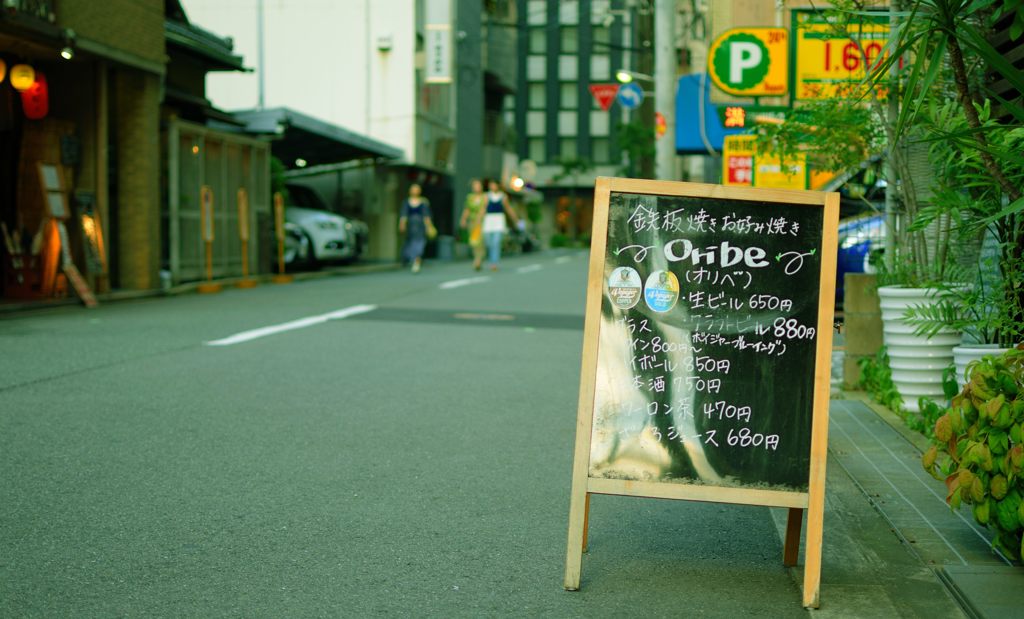 P
24h
1.60
満
時間
鉄板焼きお好み焼き
Oribe
(オリベ)
・生ビール 650円
・クラフトビール 880円
(ボイジャーブルーイング)
グラス
ワイン 800円〜
ハイボール 850円
日本酒 750円
ウーロン茶 470円
ジュース 680円